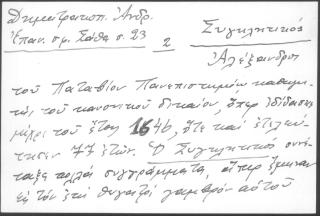 Δημητρακοπ. Ἀνδρ.
Ἐπαν. σμ. Σάθα σ. 23
2
Συγκλητικός
Ἀλέξανδρος
τοῦ Παταβίου Πανεπιστημίου καθηγη-
τὴς τοῦ κανονικοῦ δικαίου, ὅπερ ἐδίδασκε
μέχρι τοῦ ἔτους 1646, ὅτε καὶ ἐτελεύ-
τησεν 77 ἐτῶν. Ὁ Συγκλητικὸς συνέ-
ταξε πολλὰ συγγράμματα, ἅπερ ἔμειναν
εἰς τὸν ἐπὶ θυγατρὶ γαμβρὸν αὐτοῦ